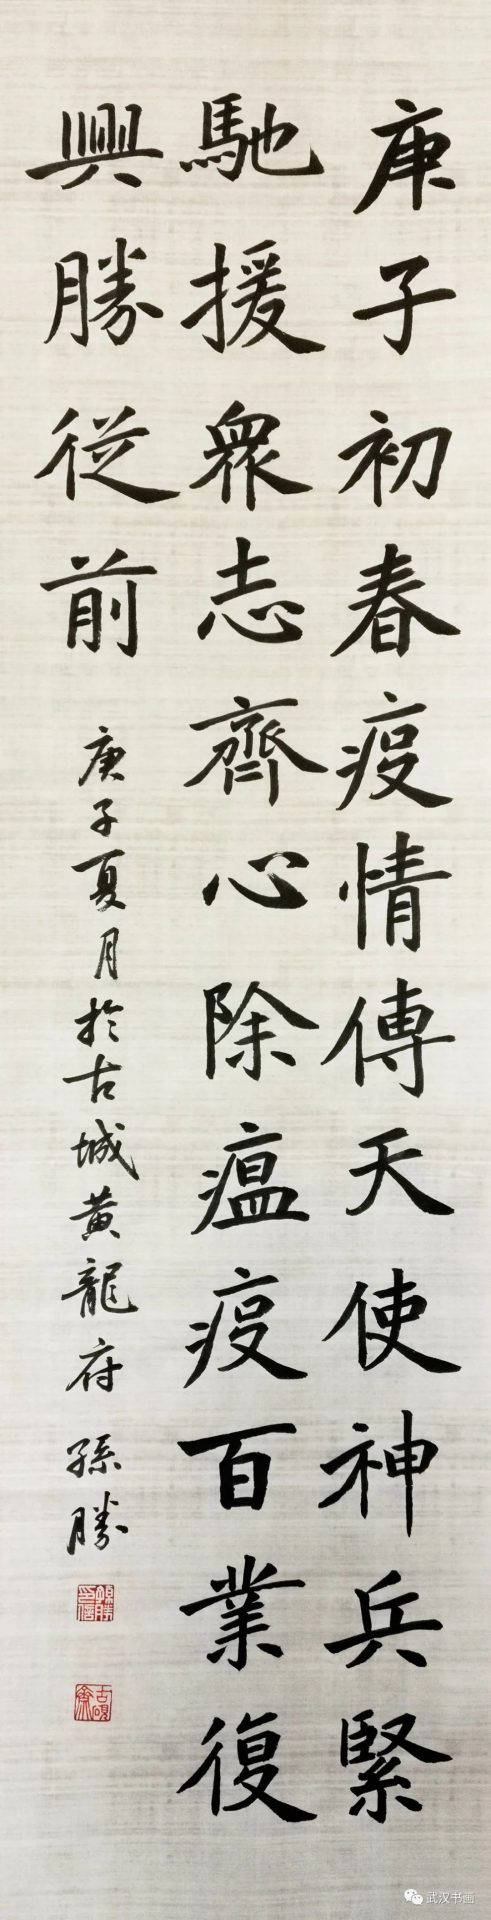 庚子初春疫情傳天使神兵緊
馳援眾志齊心除瘟疫百業復
興勝從前
庚子夏月於古城黄龍府 孫勝
武汉书画